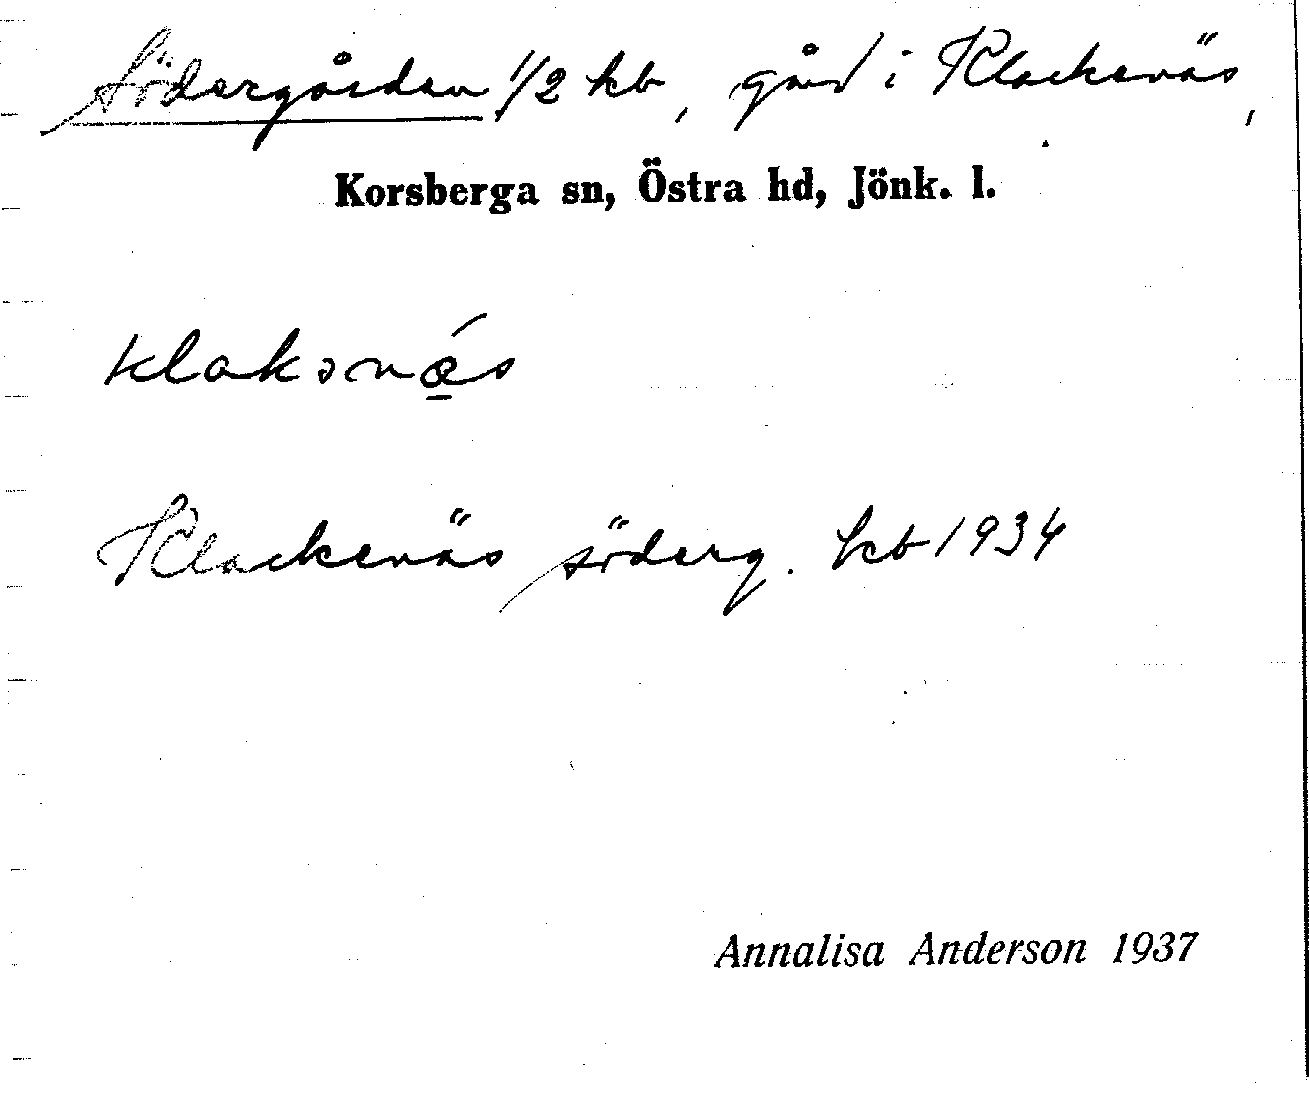 Södergården 1/2 kb, gård i Klackenäs,
Korsberga sn, Östra hd, Jönk. l.
klaksnǽs
Klackenäs söderg. kb 1934
Annalisa Anderson 1937